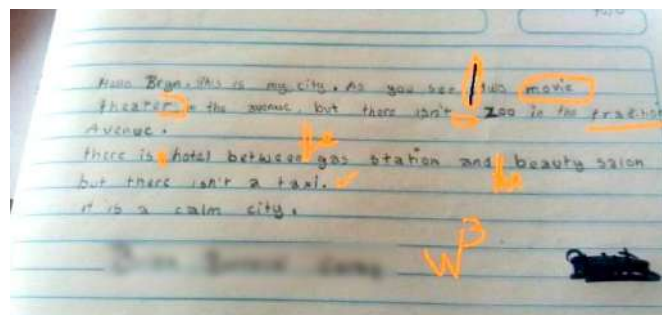 Hello Bryn. This is my city. As you see two movie
theater in the avenue, but there isn't zoo in the
Avenue.
there is hotel between gas station and beauty salon
but there isn't a taxi.
it is a calm city.
W3